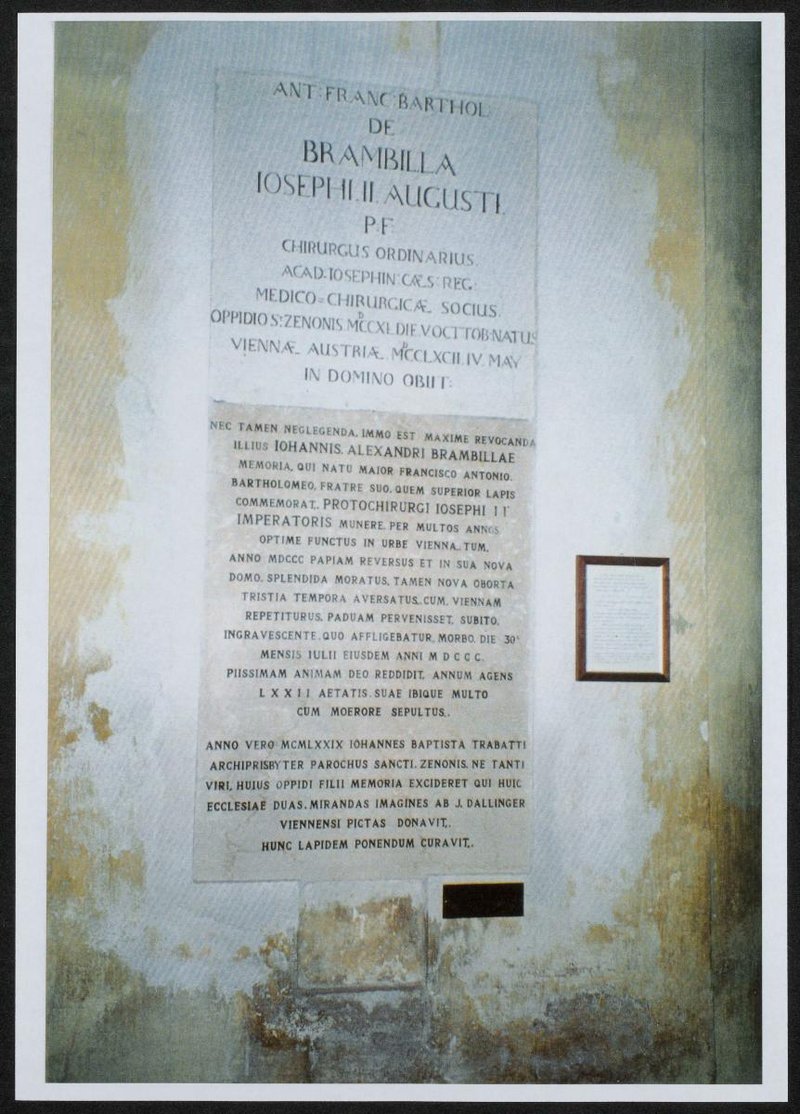 ANT: FRANC: BARTHOL:
DE
BRAMBILLA
IOSEPHI. II. AUGUSTI.
P. F.
CHIRURGUS ORDINARIUS.
ACAD: IOSEPHIN: CÆS: REG:
MEDICO=CHIRURGICÆ. SOCIUS.
OPPIDIO S: ZENONIS. MDCCXL. DIE V OCTTOB: NATUS
VIENNÆ. AUSTRIÆ. MDCCLXCII. IV. MAY
IN DOMINO OBIIT:
NEC TAMEN NEGLEGENDA, IMMO EST MAXIME REVOCANDA
ILLIUS IOHANNIS. ALEXANDRI BRAMBILLAE
MEMORIA, QUI NATU MAIOR FRANCISCO ANTONIO.
BARTHOLOMEO, FRATRE SUO, QUEM SUPERIOR LAPIS
COMMEMORAT, PROTOCHIRURGI IOSEPHI II
IMPERATORIS MUNERE, PER MULTOS ANNOS
OPTIME FUNCTUS IN URBE VIENNA, TUM,
ANNO MDCCC PAPIAM REVERSUS ET IN SUA NOVA
DOMO, SPLENDIDA MORATUS, TAMEN NOVA OBORTA
TRISTIA TEMPORA AVERSATUS, CUM, VIENNAM
REPETITURUS, PADUAM PERVENISSET, SUBITO,
INGRAVESCENTE, QUO AFFLIGEBATUR, MORBO, DIE 30ª
MENSIS IULII EIUSDEM ANNI M D C C C.
PIISSIMAM ANIMAM DEO REDDIDIT, ANNUM AGENS
L X X I I AETATIS. SUAE IBIQUE MULTO
CUM MOERORE SEPULTUS.
ANNO VERO MCMLXXIX IOHANNES BAPTISTA TRABATTI
ARCHIPRISBYTER PAROCHUS SANCTI. ZENONIS, NE TANTI
VIRI, HUIUS OPPIDI FILII MEMORIA EXCIDERET QUI HUIC
ECCLESIAE DUAS. MIRANDAS IMAGINES AB J. DALLINGER
VIENNENSI PICTAS DONAVIT,
HUNC LAPIDEM PONENDUM CURAVIT.